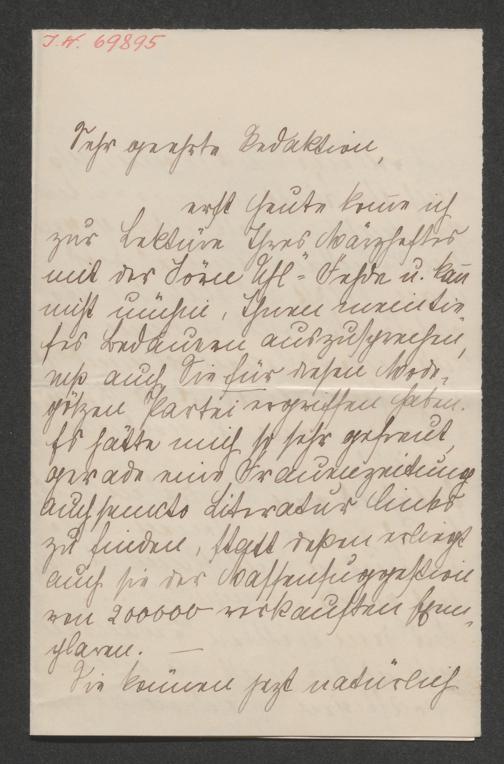 I.N. 69895
Sehr geehrte Redaktion,
erst heute kom̅e ich
zur Lektüre Ihres Märzheftes
mit der Jörn Uhl-Fehde u. kan̅
nicht umhin, Ihnen mein tie
fes Bedauern auszusprechen,
daß auch Sie für diesen Mode-
götzen Partei ergriffen haben.
Es hätte mich so sehr gefreut,
gerade eine Frauenzeitung
auch puncto Literatur links
zu finden, statt deßen erliegt
auch sie der Massensuggestion
von 200000 verkauften Exem-
plaren. —
Sie können jezt natürlich